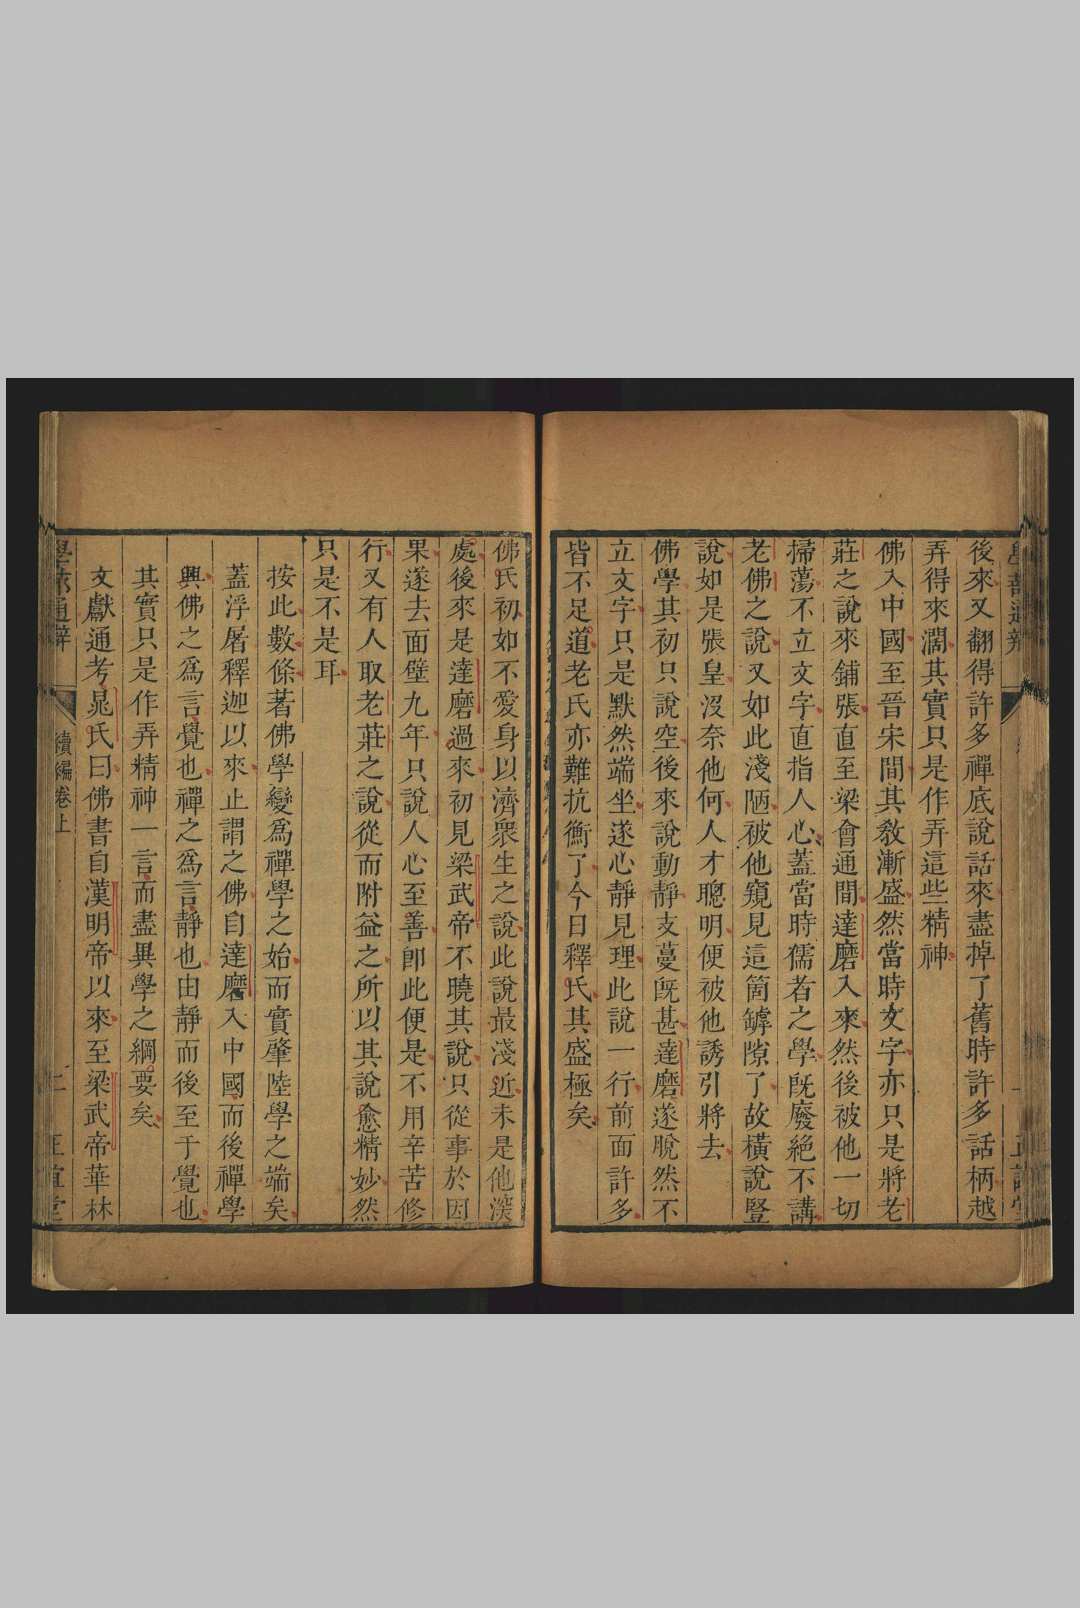 後來又翻得許多禪底說話來盡掉了舊時許多話柄越
弄得來濶其實只是作弄這些精神
佛入中國至晉宋間其教漸盛然當時文字亦只是將老
莊之說來鋪張直至梁會通間達磨入來然後被他一切
掃蕩不立文字直指人心蓋當時儒者之學旣廢絕不講
老佛之說又如此淺陋被他窺見這箇罅隙了故橫說豎
說如是張皇沒奈他何人才聰明便被他誘引將去
佛學其初只說空後來說動靜支蔓旣甚達磨遂脫然不
立文字只是默然端坐遂心靜見理此說一行前面許多
皆不足道老氏亦難抗衡了今日釋氏其盛極矣
佛氏初如不愛身以濟衆生之說此說最淺近未是他深
處後來是達磨過來初見梁武帝不曉其說只從事於因
果遂去面壁九年只說人心至善卽此便是不用辛苦修
行又有人取老莊之說從而附益之所以其說愈精妙然
只是不是耳
按此數條著佛學變爲禪學之始而實肇陸學之端矣
蓋浮屠釋迦以來止謂之佛自達磨入中國而後禪學
興佛之爲言覺也禪之爲言靜也由靜而後至于覺也
其實只是作弄精神一言而盡異學之綱要矣
文獻通考晁氏曰佛書自漢明帝以來至梁武帝華林
學蔀通辯 續編卷上 正誼堂